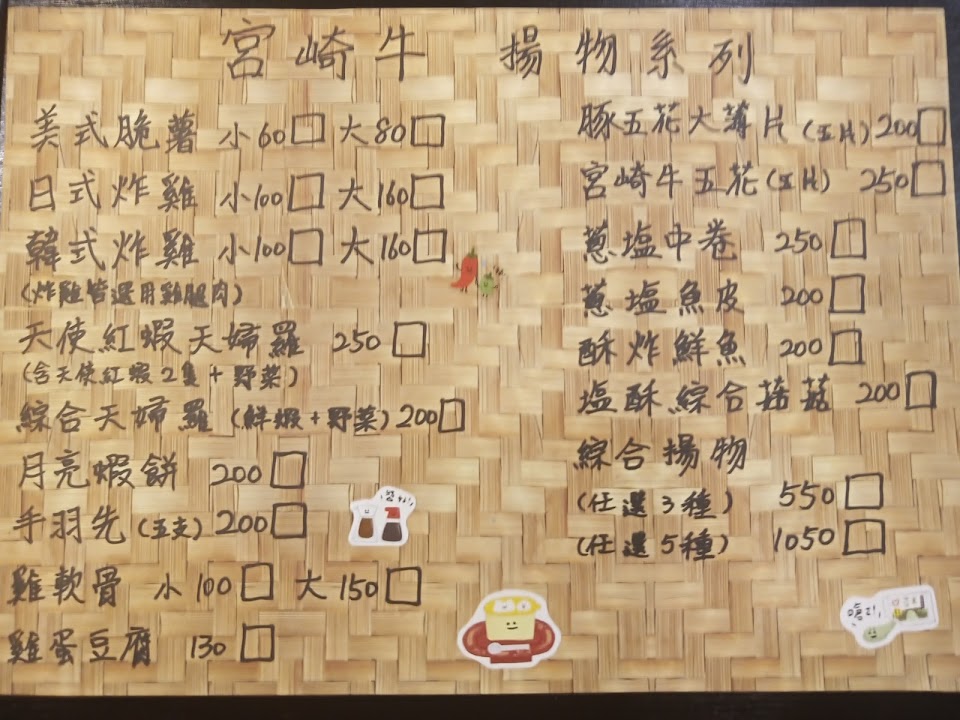 宮崎牛 揚物系列
美式脆薯 小60□ 大80□
日式炸雞 小100□ 大160□
韓式炸雞 小100□ 大160□
(炸雞皆選用雞腿肉)
天使紅蝦天婦羅 250□
(含天使紅蝦2隻+野菜)
綜合天婦羅 (鮮蝦+野菜) 200□
月亮蝦餅 200□
手羽先 (五支) 200□
雞軟骨 小100□ 大150□
雞蛋豆腐 130□
豚五花大薄片 (五片) 200□
宮崎牛五花 (五片) 250□
蔥塩中卷 250□
蔥塩魚皮 200□
酥炸鮮魚 200□
塩酥綜合菇菇 200□
綜合揚物
(任選3種) 550□
(任選5種) 1050□